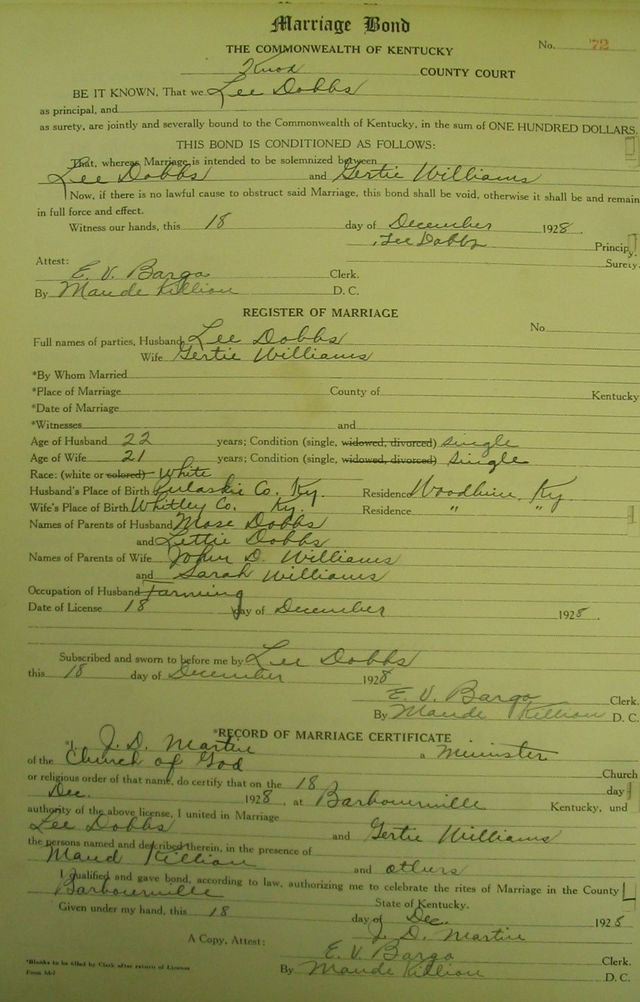 Marriage Bond
THE COMMONWEALTH OF KENTUCKY
No. 72
Knox COUNTY COURT
BE IT KNOWN, That we Lee Dobbs
as principal, and
as surety, are jointly and severally bound to the Commonwealth of Kentucky, in the sum of ONE HUNDRED DOLLARS.
THIS BOND IS CONDITIONED AS FOLLOWS:
That, whereas Marriage is intended to be solemnized between
Lee Dobbs and Gertie Williams
Now, if there is no lawful cause to obstruct said Marriage, this bond shall be void, otherwise it shall be and remain
in full force and effect.
Witness our hands, this 18 day of December 1928.
Lee Dobbs Principal
Surety.
Attest:
E. V. Bargo Clerk.
By Maude Killion D. C.
REGISTER OF MARRIAGE
No
Full names of parties, Husband Lee Dobbs
Wife Gertie Williams
*By Whom Married
*Place of Marriage County of Kentucky
*Date of Marriage
*Witnesses and
Age of Husband 22 years; Condition (single, widowed, divorced) single
Age of Wife 21 years; Condition (single, widowed, divorced) single
Race: (white or colored) White
Husband's Place of Birth Pulaskie Co. Ky. Residence Woodbine, Ky
Wife's Place of Birth Whitley Co. Ky. Residence " "
Names of Parents of Husband Mose Dobbs
and Lettie Dobbs
Names of Parents of Wife John D. Williams
and Sarah Williams
Occupation of Husband Farming
Date of License 18 day of December 1928.
Subscribed and sworn to before me by Lee Dobbs
this 18 day of December 1928
E. V. Bargo Clerk.
By Maude Killion D. C.
*RECORD OF MARRIAGE CERTIFICATE
*I, J. D. Martin a Minister
of the Church of God Church
or religious order of that name, do certify that on the 18 day
Dec. 1928, at Barbourville Kentucky, und
authority of the above license, I united in Marriage
Lee Dobbs and Gertie Williams
the persons named and described therein, in the presence of
Maud Killion and others
I qualified and gave bond, according to law, authorizing me to celebrate the rites of Marriage in the County
Barbourville State of Kentucky.
Given under my hand, this 18 day of Dec. 1928
J. D. Martin
A Copy, Attest: E. V. Bargo Clerk.
By Maude Killion D. C.
*Blanks to be filled by Clerk after return of License